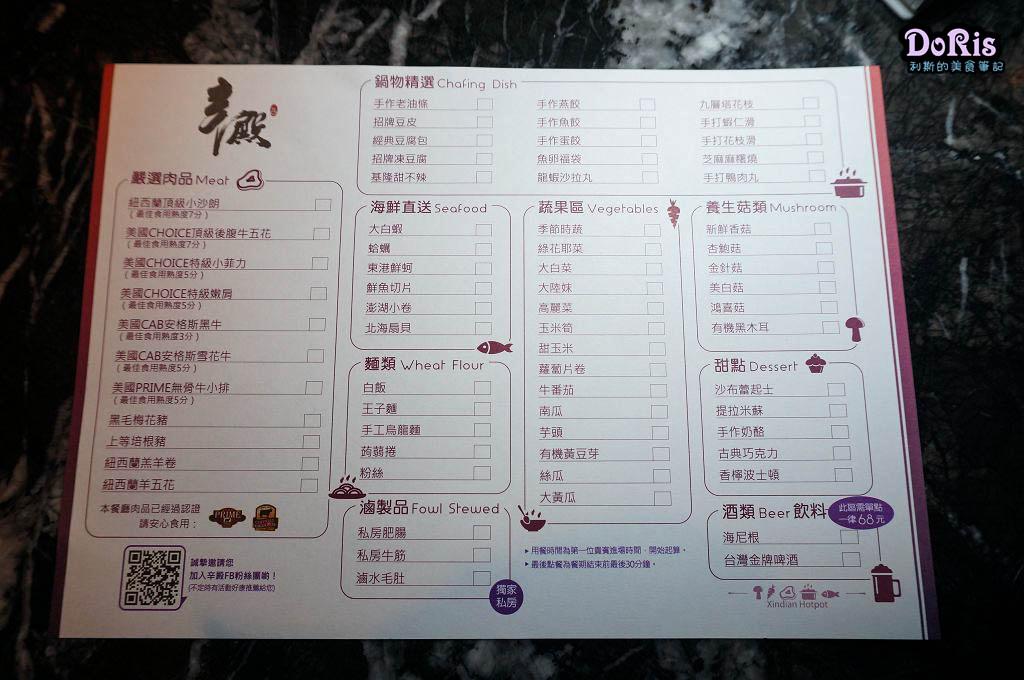 DoRis
利斯的美食筆記
辛殿
鍋物精選 Chafing Dish
手作老油條
招牌豆皮
經典豆腐包
招牌凍豆腐
基隆甜不辣
手作燕餃
手作魚餃
手作蛋餃
魚卵福袋
龍蝦沙拉丸
九層塔花枝
手打蝦仁滑
手打花枝滑
芝麻麻糬燒
手打鴨肉丸
嚴選肉品 Meat
紐西蘭頂級小沙朗
(最佳食用熟度7分)
美國CHOICE頂級後腹牛五花
(最佳食用熟度7分)
美國CHOICE特級小菲力
(最佳食用熟度5分)
美國CHOICE特級嫩肩
(最佳食用熟度5分)
美國CAB安格斯黑牛
(最佳食用熟度3分)
美國CAB安格斯雪花牛
(最佳食用熟度5分)
美國PRIME無骨牛小排
(最佳食用熟度5分)
黑毛梅花豬
上等培根豬
紐西蘭羔羊卷
紐西蘭羊五花
本餐廳肉品已經過認證
請安心食用：
PRIME
誠摯邀請您
加入辛殿FB粉絲團喲！
(不定時有活動好康推薦給您)
海鮮直送 Seafood
大白蝦
蛤蠣
東港鮮蚵
鮮魚切片
澎湖小卷
北海扇貝
麵類 Wheat Flour
白飯
王子麵
手工烏龍麵
蒟蒻捲
粉絲
滷製品 Fowl Stewed
私房肥腸
私房牛筋
滷水毛肚
獨家
私房
蔬果區 Vegetables
季節時蔬
綠花耶菜
大白菜
大陸妹
高麗菜
玉米筍
甜玉米
蘿蔔片卷
牛番茄
南瓜
芋頭
有機黃豆芽
絲瓜
大黃瓜
▸用餐時間為第一位貴賓進場時間，開始起算。
▸最後點餐為餐期結束前最後30分鐘。
養生菇類 Mushroom
新鮮香菇
杏鮑菇
金針菇
美白菇
鴻喜菇
有機黑木耳
甜點 Dessert
沙布蕾起士
提拉米蘇
手作奶酪
古典巧克力
香檸波士頓
酒類 Beer 飲料
此區需單點
一律68元
海尼根
台灣金牌啤酒
Xindian Hotpot